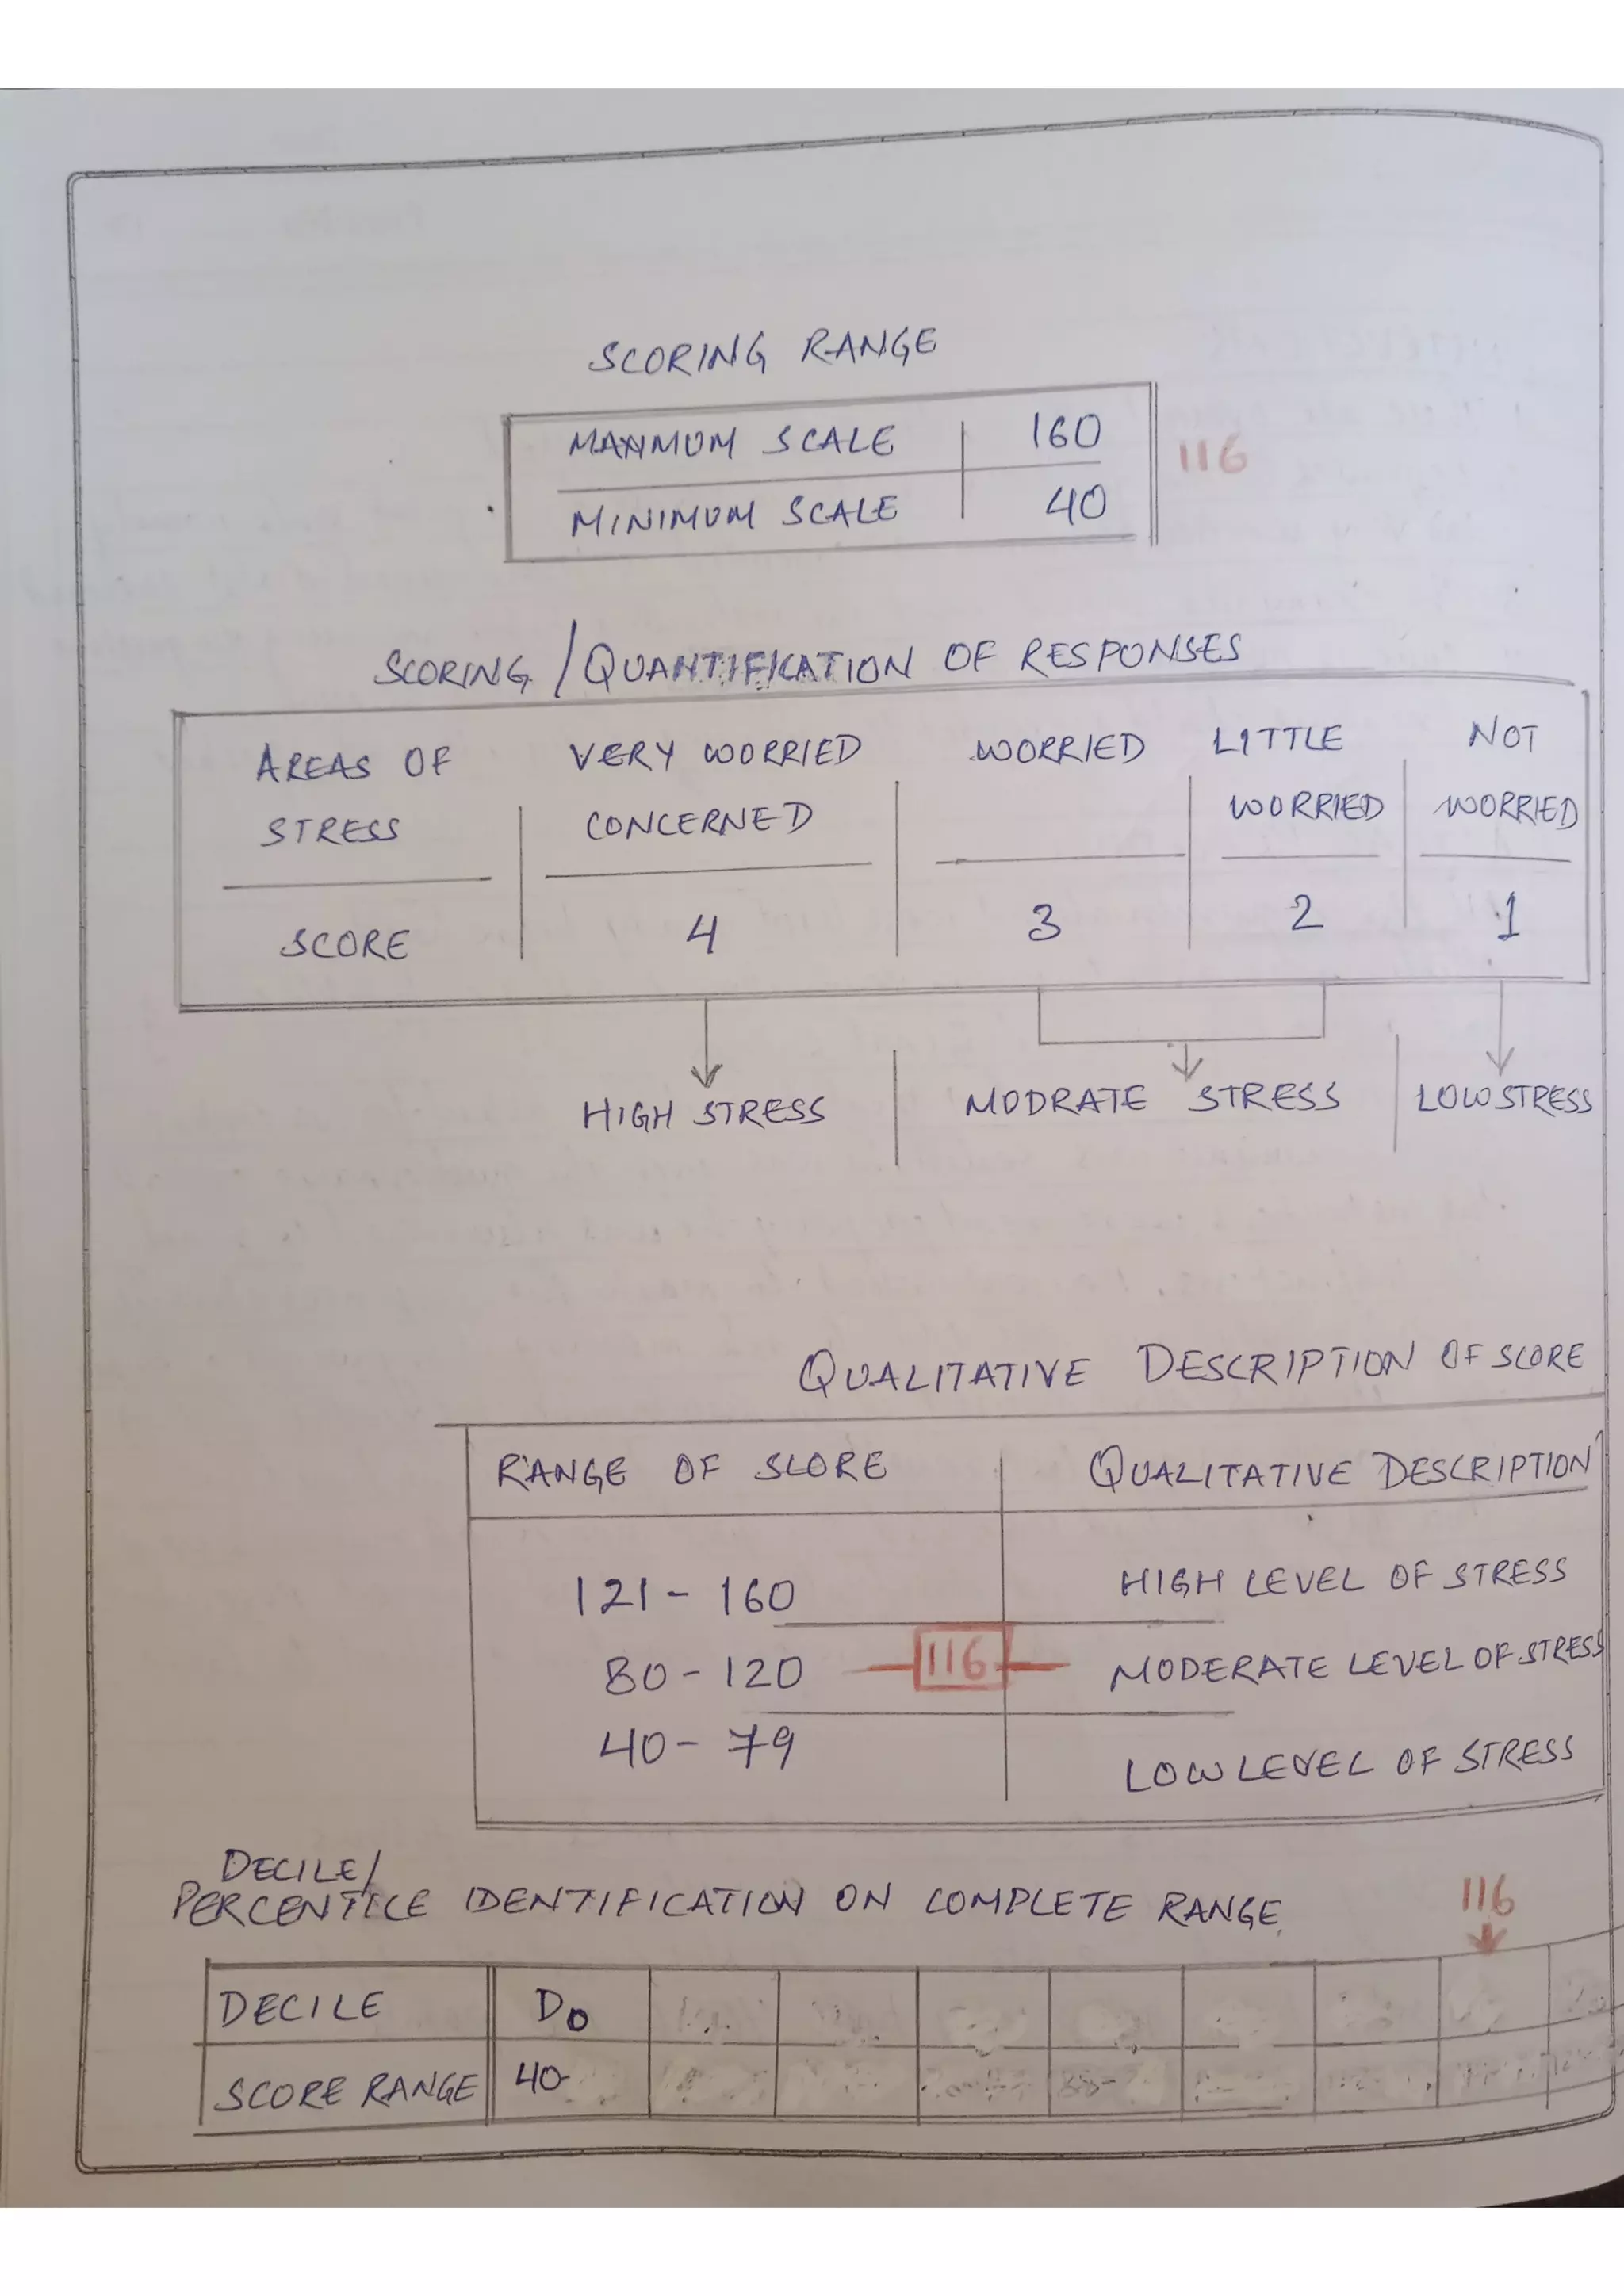 SCORING RANGE
MAXIMUM SCALE 160 116
MINIMUM SCALE 40
SCORING / QUANTIFICATION OF RESPONSES
AREAS OF VERY WORRIED WORRIED LITTLE NOT
STRESS CONCERNED WORRIED WORRIED
SCORE 4 3 2 1
HIGH STRESS MODRATE STRESS LOW STRESS
QUALITATIVE DESCRIPTION OF SCORE
RANGE OF SCORE QUALITATIVE DESCRIPTION
121 - 160 HIGH LEVEL OF STRESS
80 - 120 116 MODERATE LEVEL OF STRESS
40 - 79 LOW LEVEL OF STRESS
DECILE/
PERCENTILE IDENTIFICATION ON COMPLETE RANGE 116
DECILE D0
SCORE RANGE 40-